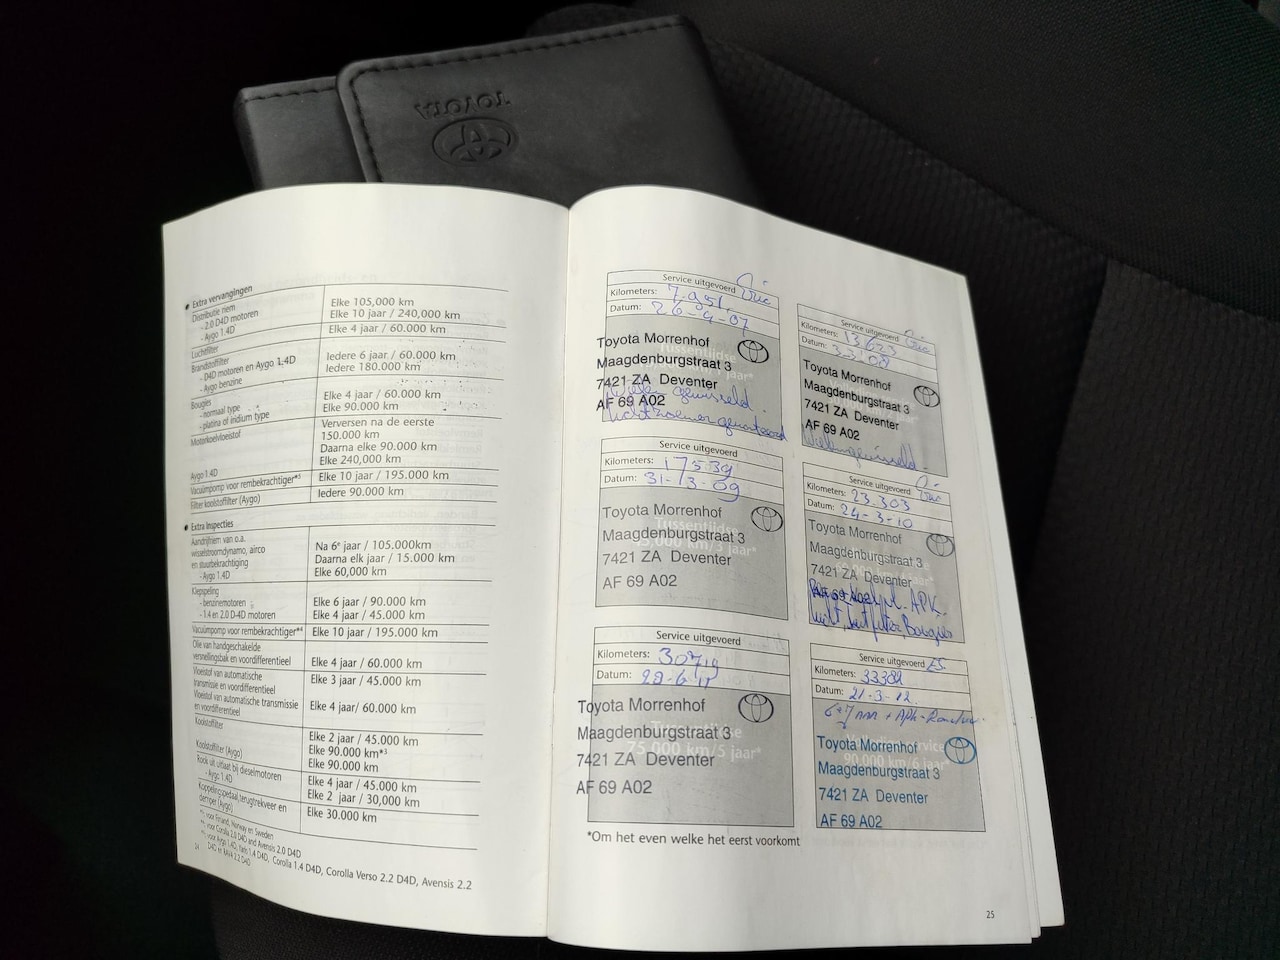 TOYOTA
• Extra vervangingen
Distributie riem
- 2.0 D4D motoren
- Aygo 1.4D
Elke 105,000 km
Elke 10 jaar / 240,000 km
Luchtfilter
Elke 4 jaar / 60.000 km
Brandstoffilter
- D4D motoren en Aygo 1.4D
- Aygo benzine
Iedere 6 jaar / 60.000 km
Iedere 180.000 km
Bougies
- normaal type
- platina of iridium type
Elke 4 jaar / 60.000 km
Elke 90.000 km
Motorkoelvloeistof
Aygo 1.4D
Verversen na de eerste
150.000 km
Daarna elke 90.000 km
Elke 240,000 km
Vacuümpomp voor rembekrachtiger*⁵
Elke 10 jaar / 195.000 km
Filter koolstoffilter (Aygo)
Iedere 90.000 km
• Extra Inspecties
Aandrijfriem van o.a.
wisselstroomdynamo, airco
en stuurbekrachtiging
- Aygo 1.4D
Na 6ᵉ jaar / 105.000km
Daarna elk jaar / 15.000 km
Elke 60,000 km
Klepspeling
- benzinemotoren
- 1.4 en 2.0 D-4D motoren
Elke 6 jaar / 90.000 km
Elke 4 jaar / 45.000 km
Vacuümpomp voor rembekrachtiger*⁴
Elke 10 jaar / 195.000 km
Olie van handgeschakelde
versnellingsbak en voordifferentieel
Elke 4 jaar / 60.000 km
Vloeistof van automatische
transmissie en voordifferentieel
Elke 3 jaar / 45.000 km
Vloeistof van automatische transmissie
en voordifferentieel
Elke 4 jaar/ 60.000 km
Koolstoffilter
Koolstoffilter (Aygo)
Elke 2 jaar / 45.000 km
Elke 90.000 km*³
Elke 90.000 km
Rook uit uitlaat bij dieselmotoren
- Aygo 1.4D
Elke 4 jaar / 45.000 km
Elke 2 jaar / 30,000 km
Koppelingspedaal,terugtrekveer en
demper (Aygo)
Elke 30.000 km
voor Finland, Norway en Sweden
voor Corolla 2.0 D4D and Avensis 2.0 D4D
voor Aygo 1.4D, Yaris 1.4 D4D, Corolla 1.4 D4D, Corolla Verso 2.2 D4D, Avensis 2.2
D4D en RAV4 2.2 D4D
Service uitgevoerd
Kilometers: 7.951
Datum: 26-9-07
Toyota Morrenhof
Maagdenburgstraat 3
7421 ZA Deventer
AF 69 A02
Wielen gewisseld.
Service uitgevoerd
Kilometers:
Datum:
Toyota Morrenhof
Maagdenburgstraat 3
7421 ZA Deventer
AF 69 A02
Wielen gewisseld.
Service uitgevoerd
Kilometers: 17539
Datum: 31-3-09
Tussentijdse
Toyota Morrenhof
Maagdenburgstraat 3
7421 ZA Deventer
AF 69 A02
Service uitgevoerd
Kilometers: 23.303
Datum: 24-3-10
Toyota Morrenhof
Maagdenburgstraat 3
7421 ZA Deventer
AF 69 A02
APK.
Bougies
Service uitgevoerd
Kilometers: 30719
Datum: 28-6-11
Toyota Morrenhof
Maagdenburgstraat 3
75.000 km/5 jaar*
7421 ZA Deventer
AF 69 A02
Service uitgevoerd
Kilometers: 33382
Datum: 21-3-12
Volledige service
90.000 km/6 jaar*
Toyota Morrenhof
Maagdenburgstraat 3
7421 ZA Deventer
AF 69 A02
*Om het even welke het eerst voorkomt
25